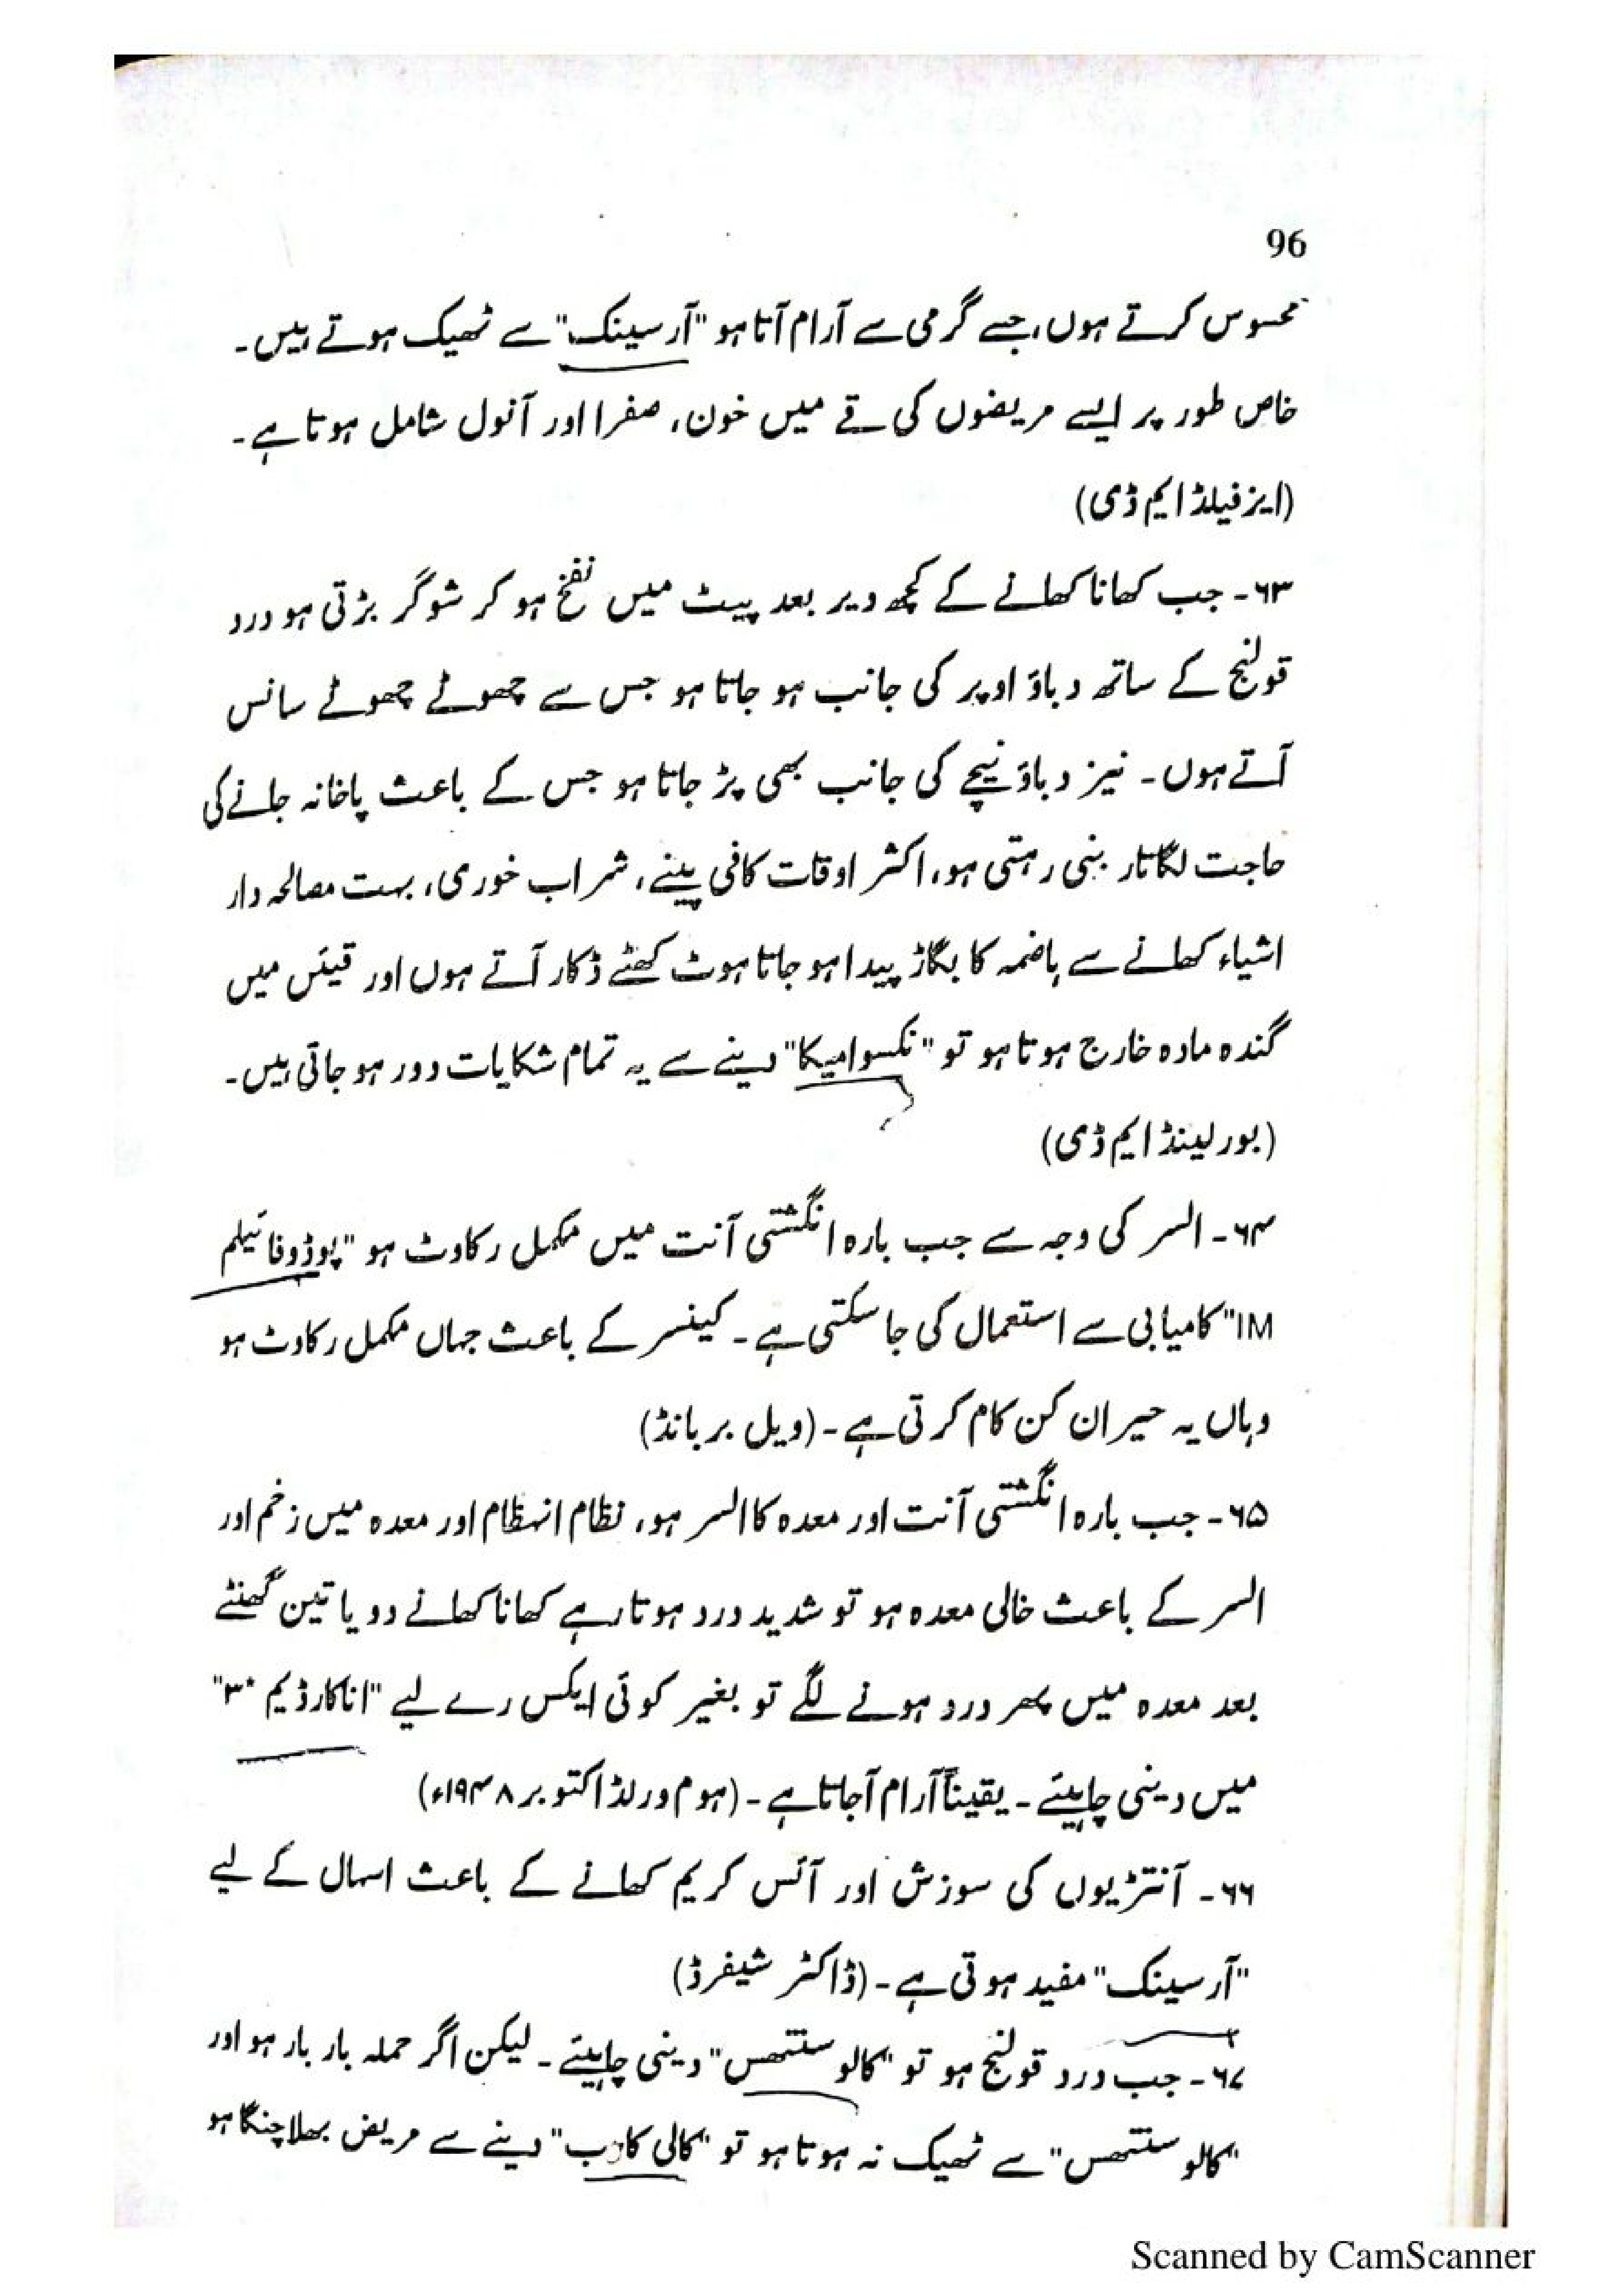 96
محسوس کرتے ہوں، جسے گرمی سے آرام آتا ہو "آرسینک" سے ٹھیک ہوتے ہیں۔
خاص طور پر ایسے مریضوں کی قے میں خون، صفرا اور آنول شامل ہوتا ہے۔
(ایز فیلڈ ایم ڈی)
۶۳۔ جب کھانا کھانے کے کچھ دیر بعد پیٹ میں نفخ ہو کر شوگر بڑتی ہو درد
قولنج کے ساتھ دباؤ اوپر کی جانب ہو جاتا ہو جس سے چھوٹے چھوٹے سانس
آتے ہوں۔ نیز دباؤ نیچے کی جانب بھی پڑ جاتا ہو جس کے باعث پاخانہ جانے کی
حاجت لگاتار بنی رہتی ہو، اکثر اوقات کافی پینے، شراب خوری، بہت مصالحہ دار
اشیاء کھانے سے ہاضمہ کا بگاڑ پیدا ہو جاتا ہوٹ کھٹے ڈکار آتے ہوں اور قیئس میں
گندہ مادہ خارج ہوتا ہو تو "نکسوامیکا" دینے سے یہ تمام شکایات دور ہو جاتی ہیں۔
(بور لینڈ ایم ڈی)
۶۴۔ السر کی وجہ سے جب بارہ انگشتی آنت میں مکمل رکاوٹ ہو "پوڈوفائیلم
IM" کامیابی سے استعمال کی جا سکتی ہے۔ کینسر کے باعث جہاں مکمل رکاوٹ ہو
وہاں یہ حیران کن کام کرتی ہے۔ (ویل بر بانڈ)
۶۵۔ جب بارہ انگشتی آنت اور معدہ کا السر ہو، نظام انہظام اور معدہ میں زخم اور
السر کے باعث خالی معدہ ہو تو شدید درد ہوتا رہے کھانا کھانے دو یا تین گھنٹے
بعد معدہ میں پھر درد ہونے لگے تو بغیر کوئی ایکس رے لیے "اناکارڈیم ۳*"
میں دینی چاہیئے۔ یقیناً آرام آجاتا ہے۔ (ہوم ورلڈ اکتوبر ۱۹۴۸ء)
۶۶۔ آنتڑیوں کی سوزش اور آئس کریم کھانے کے باعث اسہال کے لیے
"آرسینک" مفید ہوتی ہے۔ (ڈاکٹر شیفرڈ)
۶۷۔ جب درد قولنج ہو تو "کالو سنتھس" دینی چاہیئے۔ لیکن اگر حملہ بار بار ہو اور
"کالو سنتھس" سے ٹھیک نہ ہوتا ہو تو "کالی کارب" دینے سے مریض بھلا چنگا ہو
Scanned by CamScanner